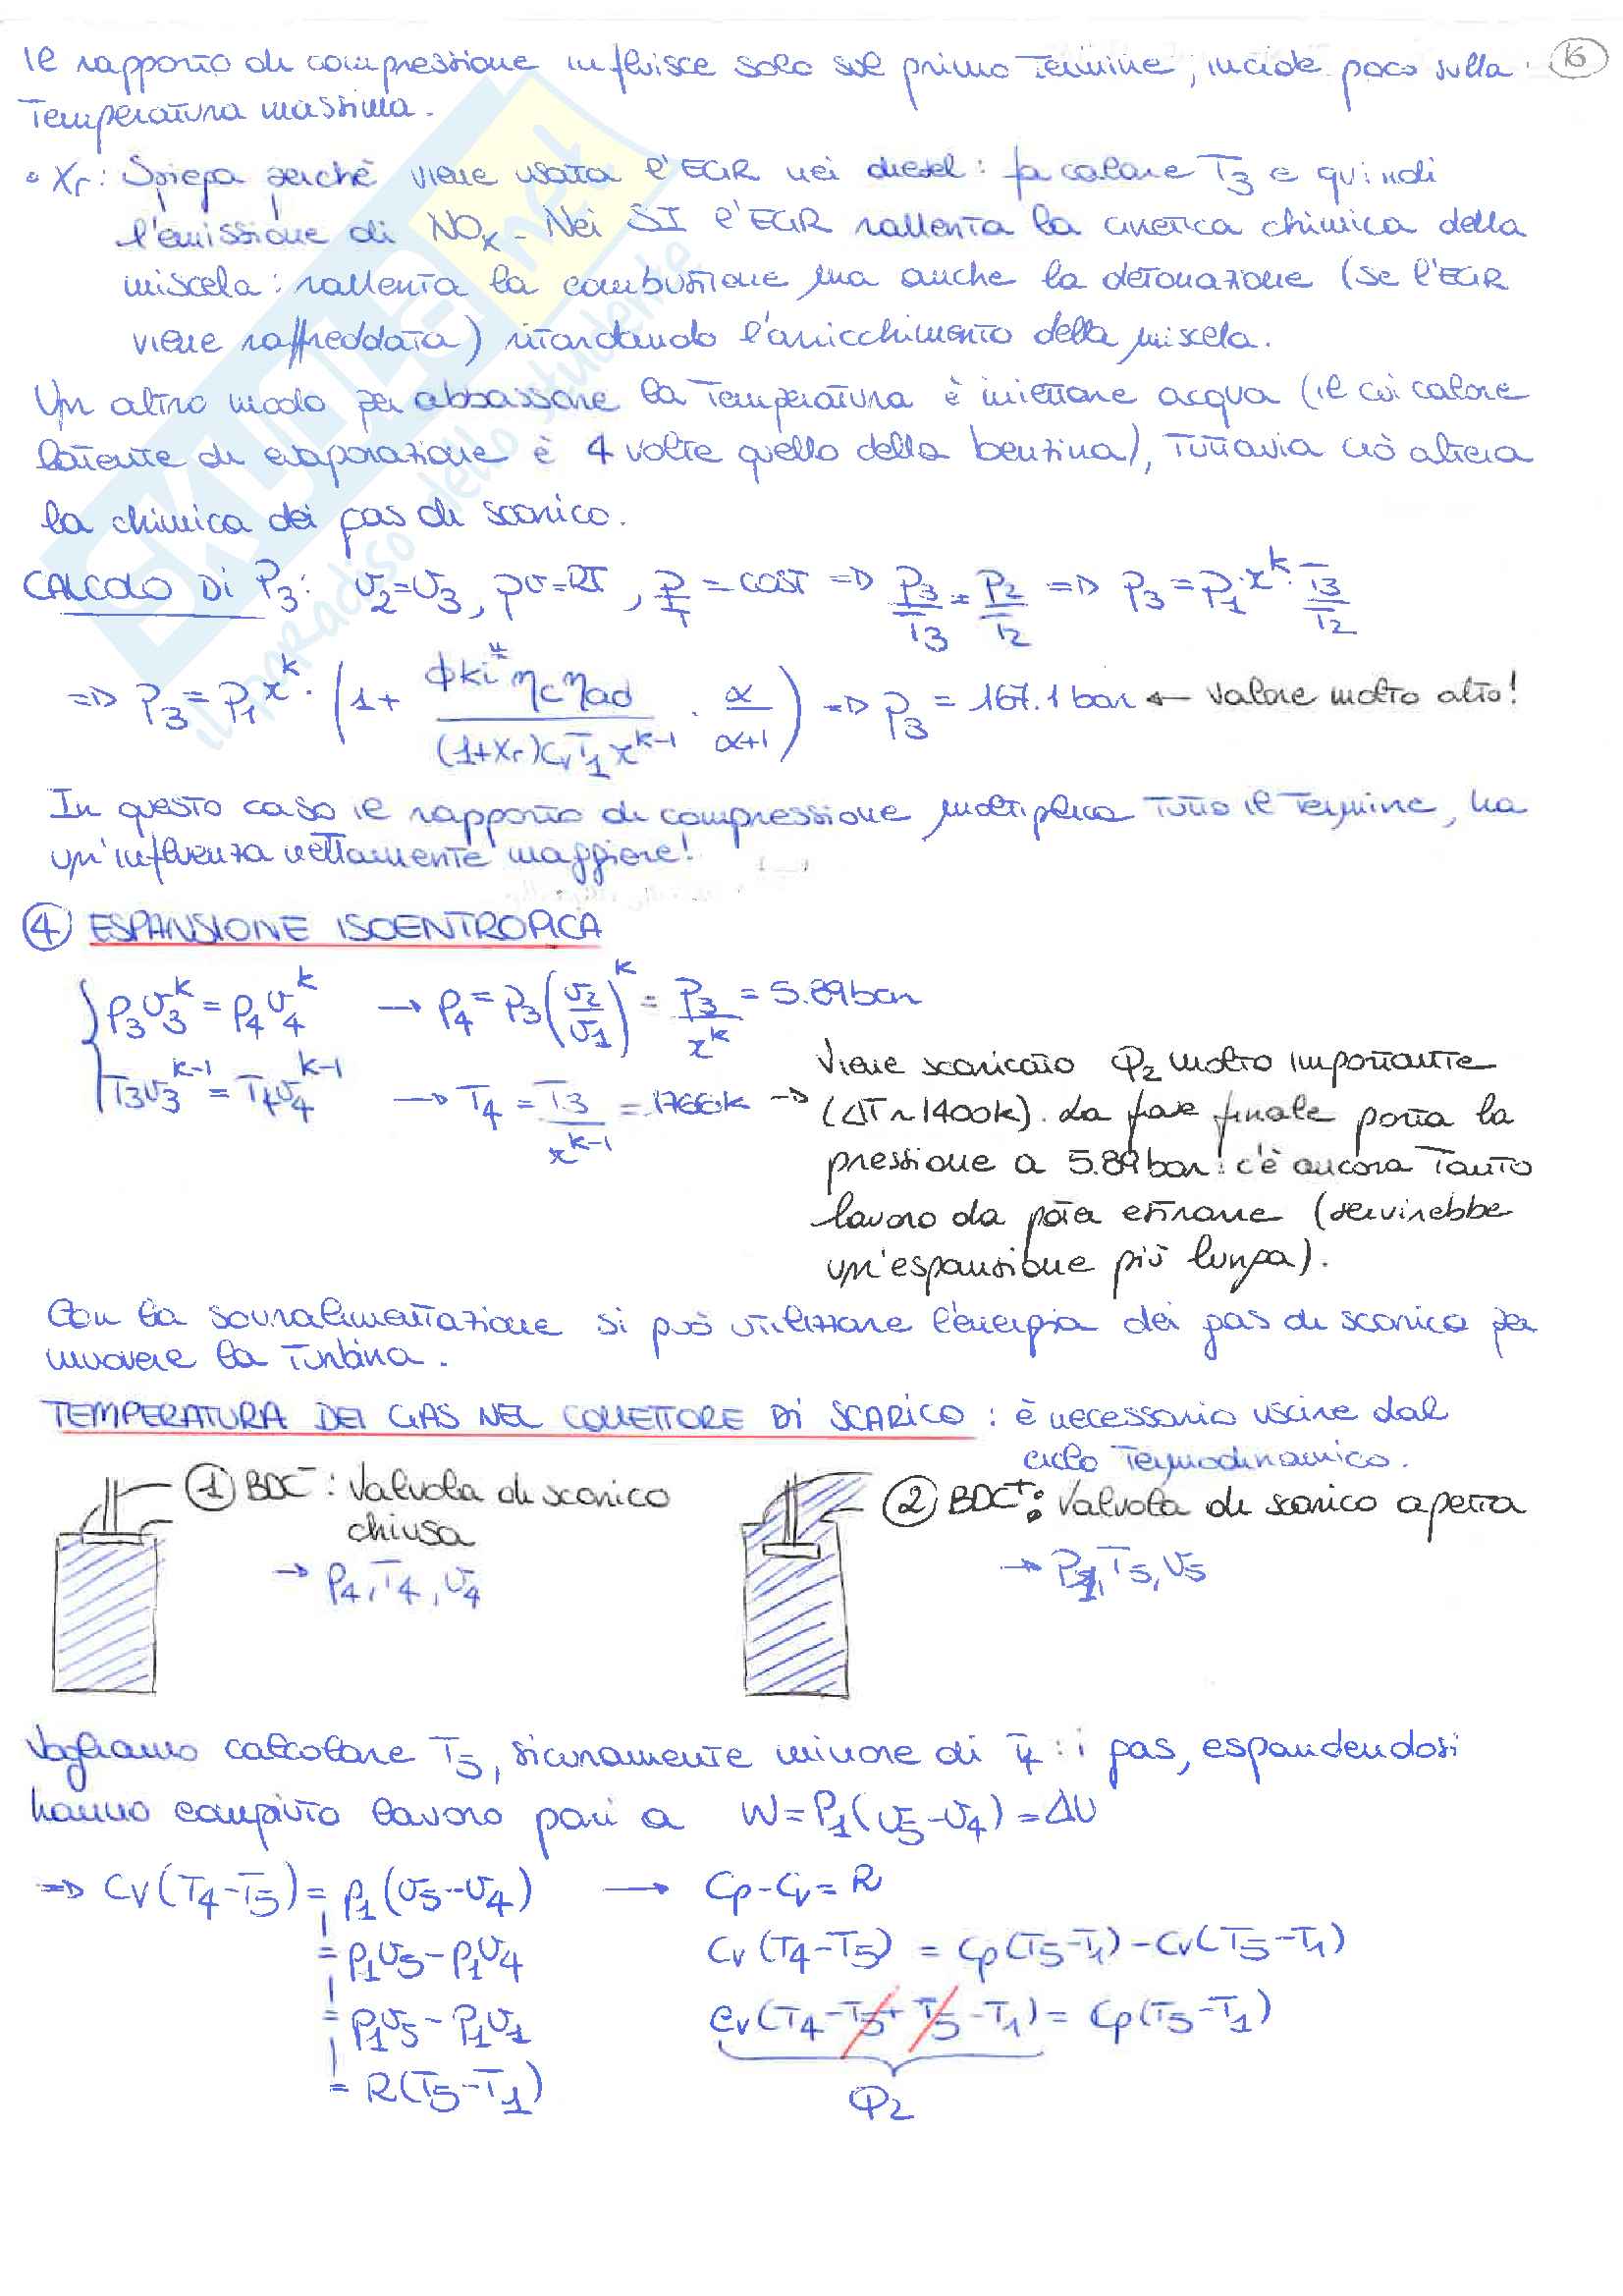 Il rapporto di compressione influisce solo sul primo termine, incide poco sulla
16
temperatura massima.
• Xr: Spiega perchè viene usata l'EGR nei diesel: fa calare T3 e quindi
l'emissione di NOx. Nei SI l'EGR rallenta la cinetica chimica della
miscela: rallenta la combustione ma anche la detonazione (se l'EGR
viene raffreddata) ritardando l'arricchimento della miscela.
Un altro modo per abbassare la temperatura è iniettare acqua (il cui calore
latente di evaporazione è 4 volte quello della benzina), tuttavia ciò altera
la chimica dei gas di scarico.
CALCOLO DI P3: v2=v3, pv=RT, p/T = cost => P3/T3 = P2/T2 => P3 = P1·x^k·T3/T2
=> P3 = P1 x^k · (1 + ϕki* ηc ηad / ((1+Xr) cv T1 x^(k-1)) · α/(α+1)) => P3 = 167.1 bar ← valore molto alto!
In questo caso il rapporto di compressione moltiplica tutto il termine, ha
un'influenza nettamente maggiore!
④ ESPANSIONE ISOENTROPICA
{ P3v3^k = P4v4^k → P4 = P3(v2/v1)^k = P3/x^k = 5.89 bar
T3v3^(k-1) = T4v4^(k-1) → T4 = T3/x^(k-1) = 1766K →
Viene scaricato Q2 molto importante
(ΔT ~ 1400K). La fase finale porta la
pressione a 5.89 bar: c'è ancora tanto
lavoro da poter estrarre (servirebbe
un'espansione più lunga).
Con la sovralimentazione si può utilizzare l'energia dei gas di scarico per
muovere la turbina.
TEMPERATURA DEI GAS NEL COLLETTORE DI SCARICO: è necessario uscire dal
ciclo termodinamico.
① BDC⁻: Valvola di scarico
chiusa
→ P4, T4, v4
② BDC⁺: Valvola di scarico aperta
→ P1, T5, v5
Vogliamo calcolare T5, sicuramente minore di T4: i gas, espandendosi
hanno compiuto lavoro pari a W=P1(v5-v4)=ΔU
=> Cv(T4-T5) = P1(v5-v4) → Cp-Cv=R
= P1v5-P1v4
= P1v5-P1v1
= R(T5-T1)
Cv(T4-T5) = Cp(T5-T1)-Cv(T5-T1)
Cv(T4-T5+T5-T1) = Cp(T5-T1)
Q2
SKUOLA.net
il paradiso dello studente